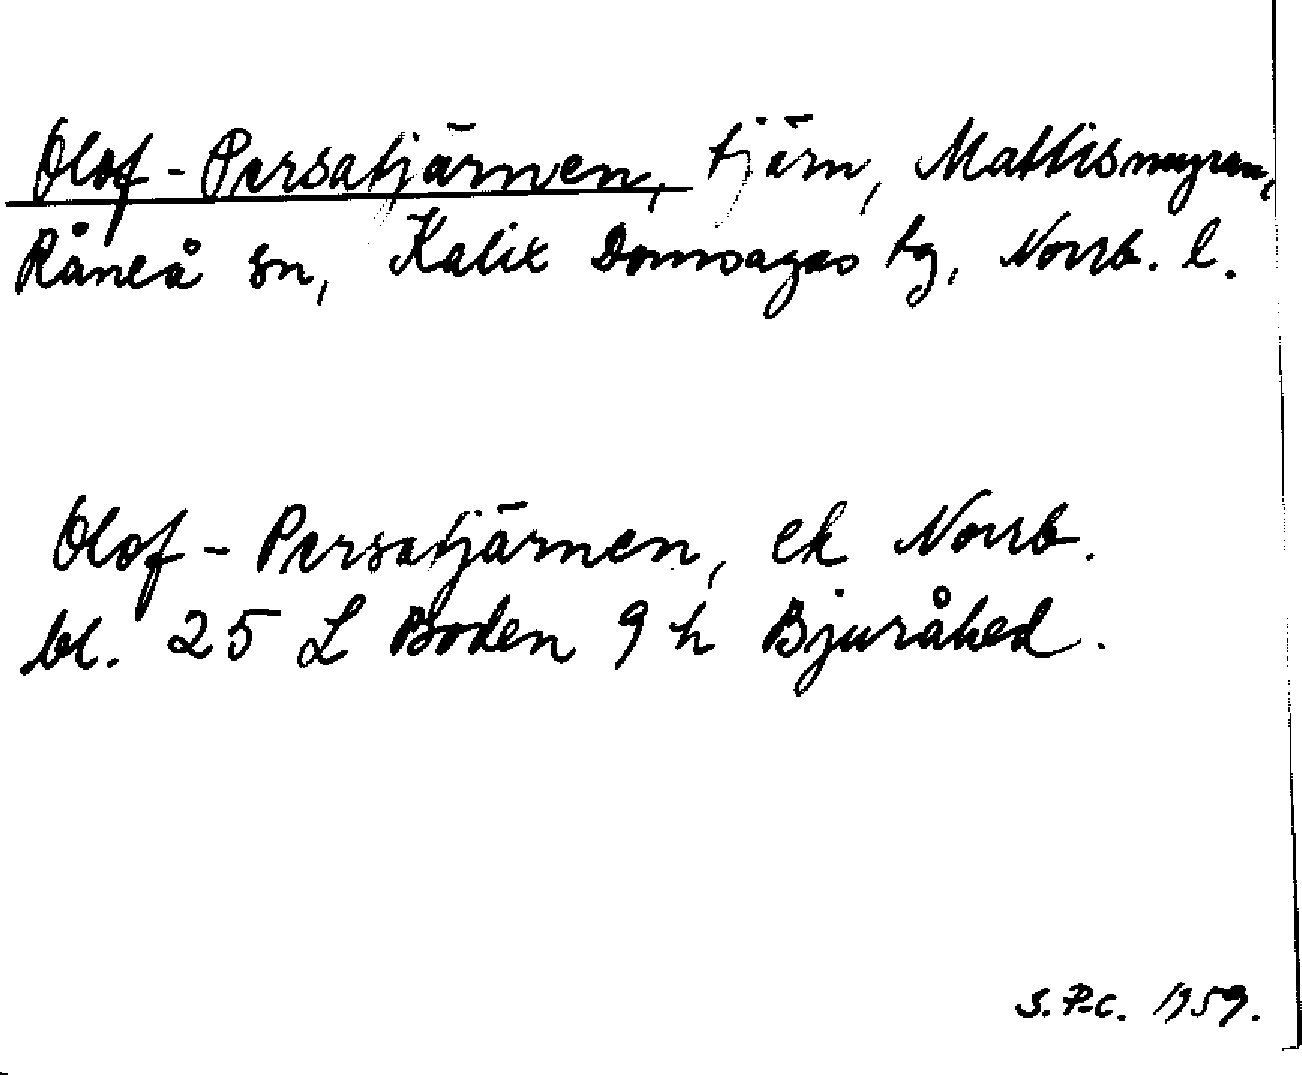 Olof-Persatjärnen, tjärn, Mattismyran,
Råneå sn, Kalix Domsagas tg, Norrb. l.
Olof-Persatjärnen, ek Norrb.
bl. 25 L Boden 9 h Bjuråhed.
S.P-c. 1959.